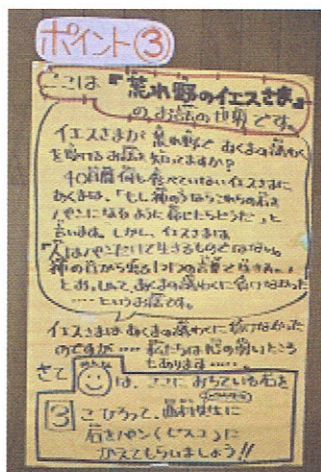 ポイント③
ここは『荒れ野のイエスさま』
のお話の世界です。
イエスさまが荒れ野であくまの誘わく
を受けるお話を知ってますか?
40日間何も食べていないイエスさまに
あくまは、「もし神の子ならこれらの石を
パンになるように命じたらどうだ」と
言います。しかし、イエスさまは
『人はパンだけで生きるものではない。
神の口から出る1つ1つの言葉で生きる。』
とお
あくまの誘わくに負けなかった
……というお話です。
イエスさまはあくまの誘わくに負けなかった
のですが……私たちは心の弱いところ
もあります……。
さて
は、ここにおちている石を
3こひろって、
に
石をパン(ビスコ)に
かえてもらいましょう!!